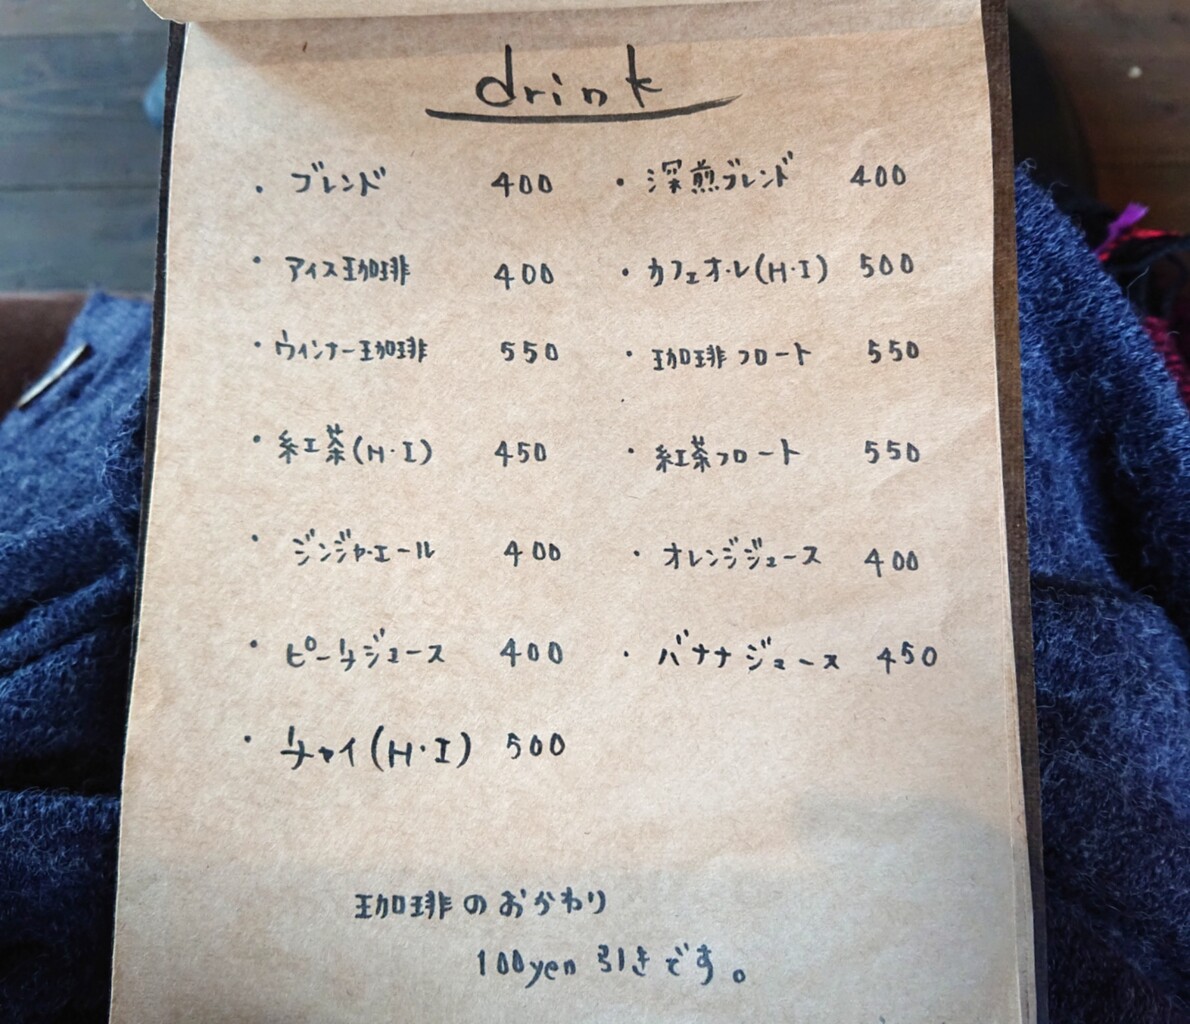 drink
・ブレンド 400 ・深煎ブレンド 400
・アイス珈琲 400 ・カフェオ・レ(H・I) 500
・ウィンナー珈琲 550 ・珈琲フロート 550
・紅茶(H・I) 450 ・紅茶フロート 550
・ジンジャーエール 400 ・オレンジジュース 400
・ピーチジュース 400 ・バナナジュース 450
・チャイ(H・I) 500
珈琲のおかわり
100yen 引きです。